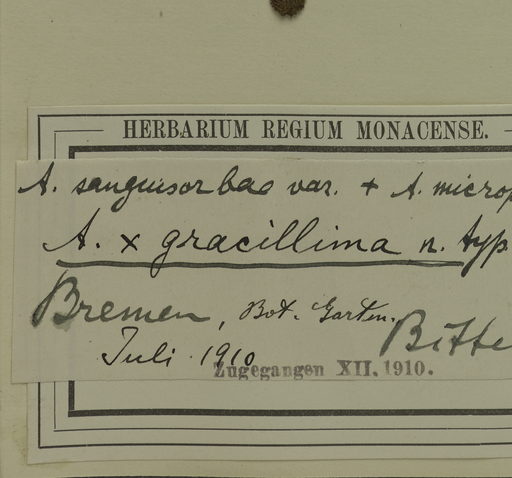 HERBARIUM REGIUM MONACENSE.
A. sanguisorbae var. + A. microp
A. x gracillima n. typ.
Bremen, Bot. Garten.
Bitte
Juli 1910
Zugegangen XII. 1910.